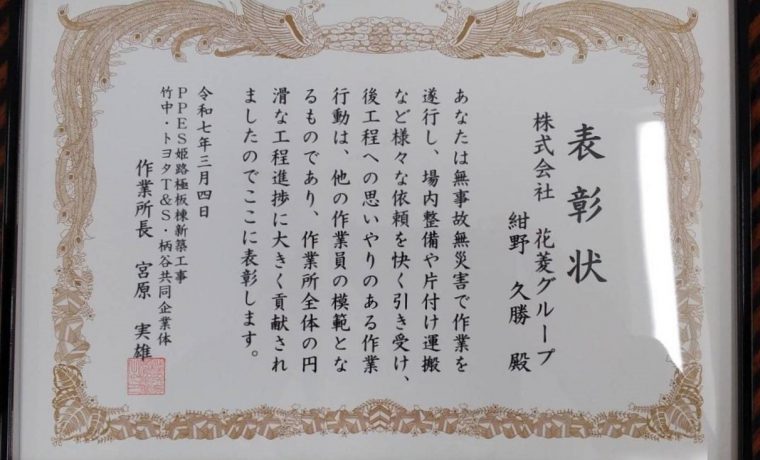 表彰状
株式会社 花菱グループ
紺野 久勝 殿
あなたは無事故無災害で作業を
遂行し、場内整備や片付け運搬
など様々な依頼を快く引き受け、
後工程への思いやりのある作業
行動は、他の作業員の模範とな
るものであり、作業所全体の円
滑な工程進捗に大きく貢献され
ましたのでここに表彰します。
令和七年三月四日
PPES姫路極板棟新築工事
竹中・トヨタT&S・柄谷共同企業体
作業所長 宮原 実雄